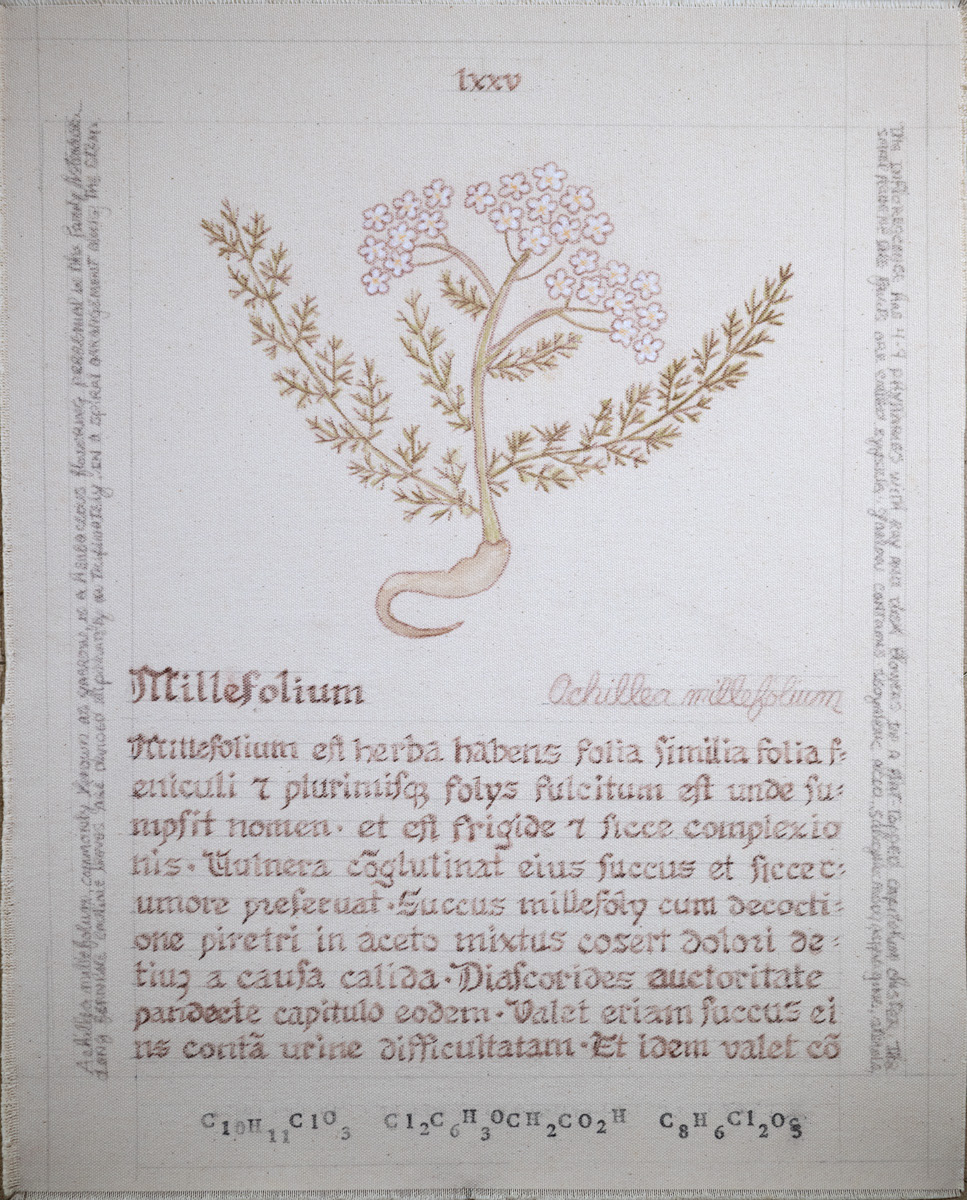 lxxv
Achillea millefolium, commonly known as yarrow, is a herbaceous flowering perennial in the family Asteraceae.
long feather-like leaves are divided bipinnately or tripinnately in a spiral arrangement along the stem.
The inflorescence has 4-9 phyllaries with ray and disk flowers in a flat-topped capitulum cluster, the
small fruits are called cypsela. Yarrow contains isovaleric acid, salicylic acid,
Millefolium
Achillea millefolium
Millefolium eſt herba habens folia ſimilia folia f-
eniculi ⁊ plurimiſꝗ folys fulcitum eſt unde ſu-
mpſit nomen· et eſt frigide ⁊ ſicce complexio
nis· Vulnera cõglutinat eius ſuccus et ſiccec-
umore preſeruat·Succus millefoly cum decocti-
one piretri in aceto mixtus cosert dolori de-
tiuȝ a cauſa calida·Diaſcorides auctoritate
pandecte capitulo eodem·Valet eriam ſuccus ei
ns contã urine difficultatam·Et idem valet cõ
C₁₀H₁₁ClO₃ Cl₂C₆H₃OCH₂CO₂H C₈H₆Cl₂O₃